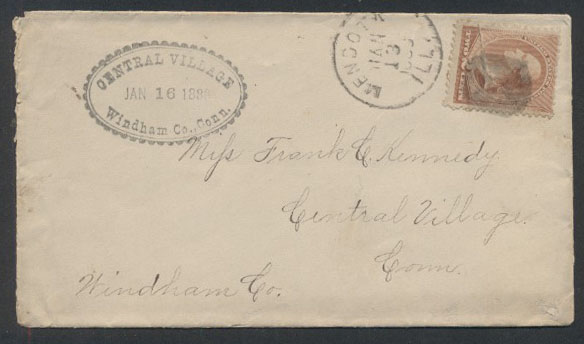 CENTRAL VILLAGE
JAN 16
Windham Co., Conn.
MENDOTA
JAN
13
ILL.
Miss Frank C. Kennedy
Central Village
Conn.
Windham Co.